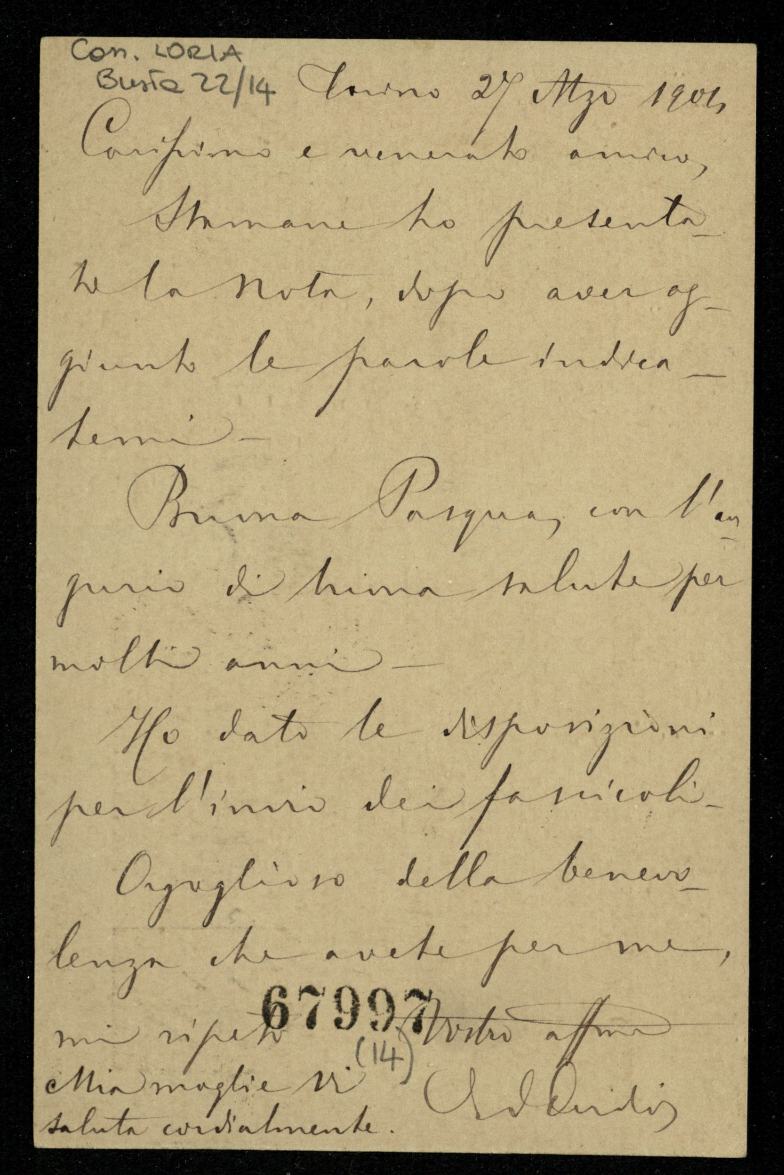 Con. LORIA
Busta 22/14
Torino 27 Mzo
Carissimo e venerato amico,
Stamane ho presenta-
to la Nota, dopo aver ag-
giunto le parole indica-
temi -
Buona Pasqua, con l'au-
gurio di buona salute per
molti anni -
Ho dato le disposizioni
per l'invio dei fascicoli -
Orgoglioso della benevo-
lenza che avete per me,
mi ripeto Vostro affmo
67997
(14)
Mia moglie Vi
saluta cordialmente.